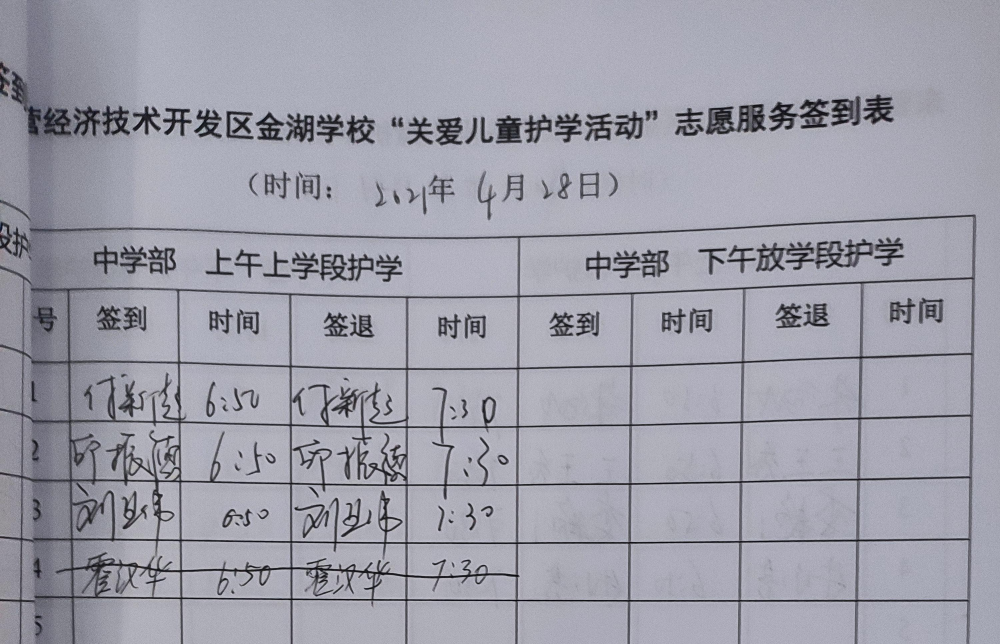 签到
营经济技术开发区金湖学校“关爱儿童护学活动”志愿服务签到表
(时间: 2021年 4月 28日)
段护
中学部 上午上学段护学 中学部 下午放学段护学
号 签到 时间 签退 时间 签到 时间 签退 时间
1 付新超 6:50 付新超 7:30
2 印振德 6:50 印振德 7:30
3 刘卫伟 6:50 刘卫伟 7:30
4 霍汉华 6:50 霍汉华 7:30
5